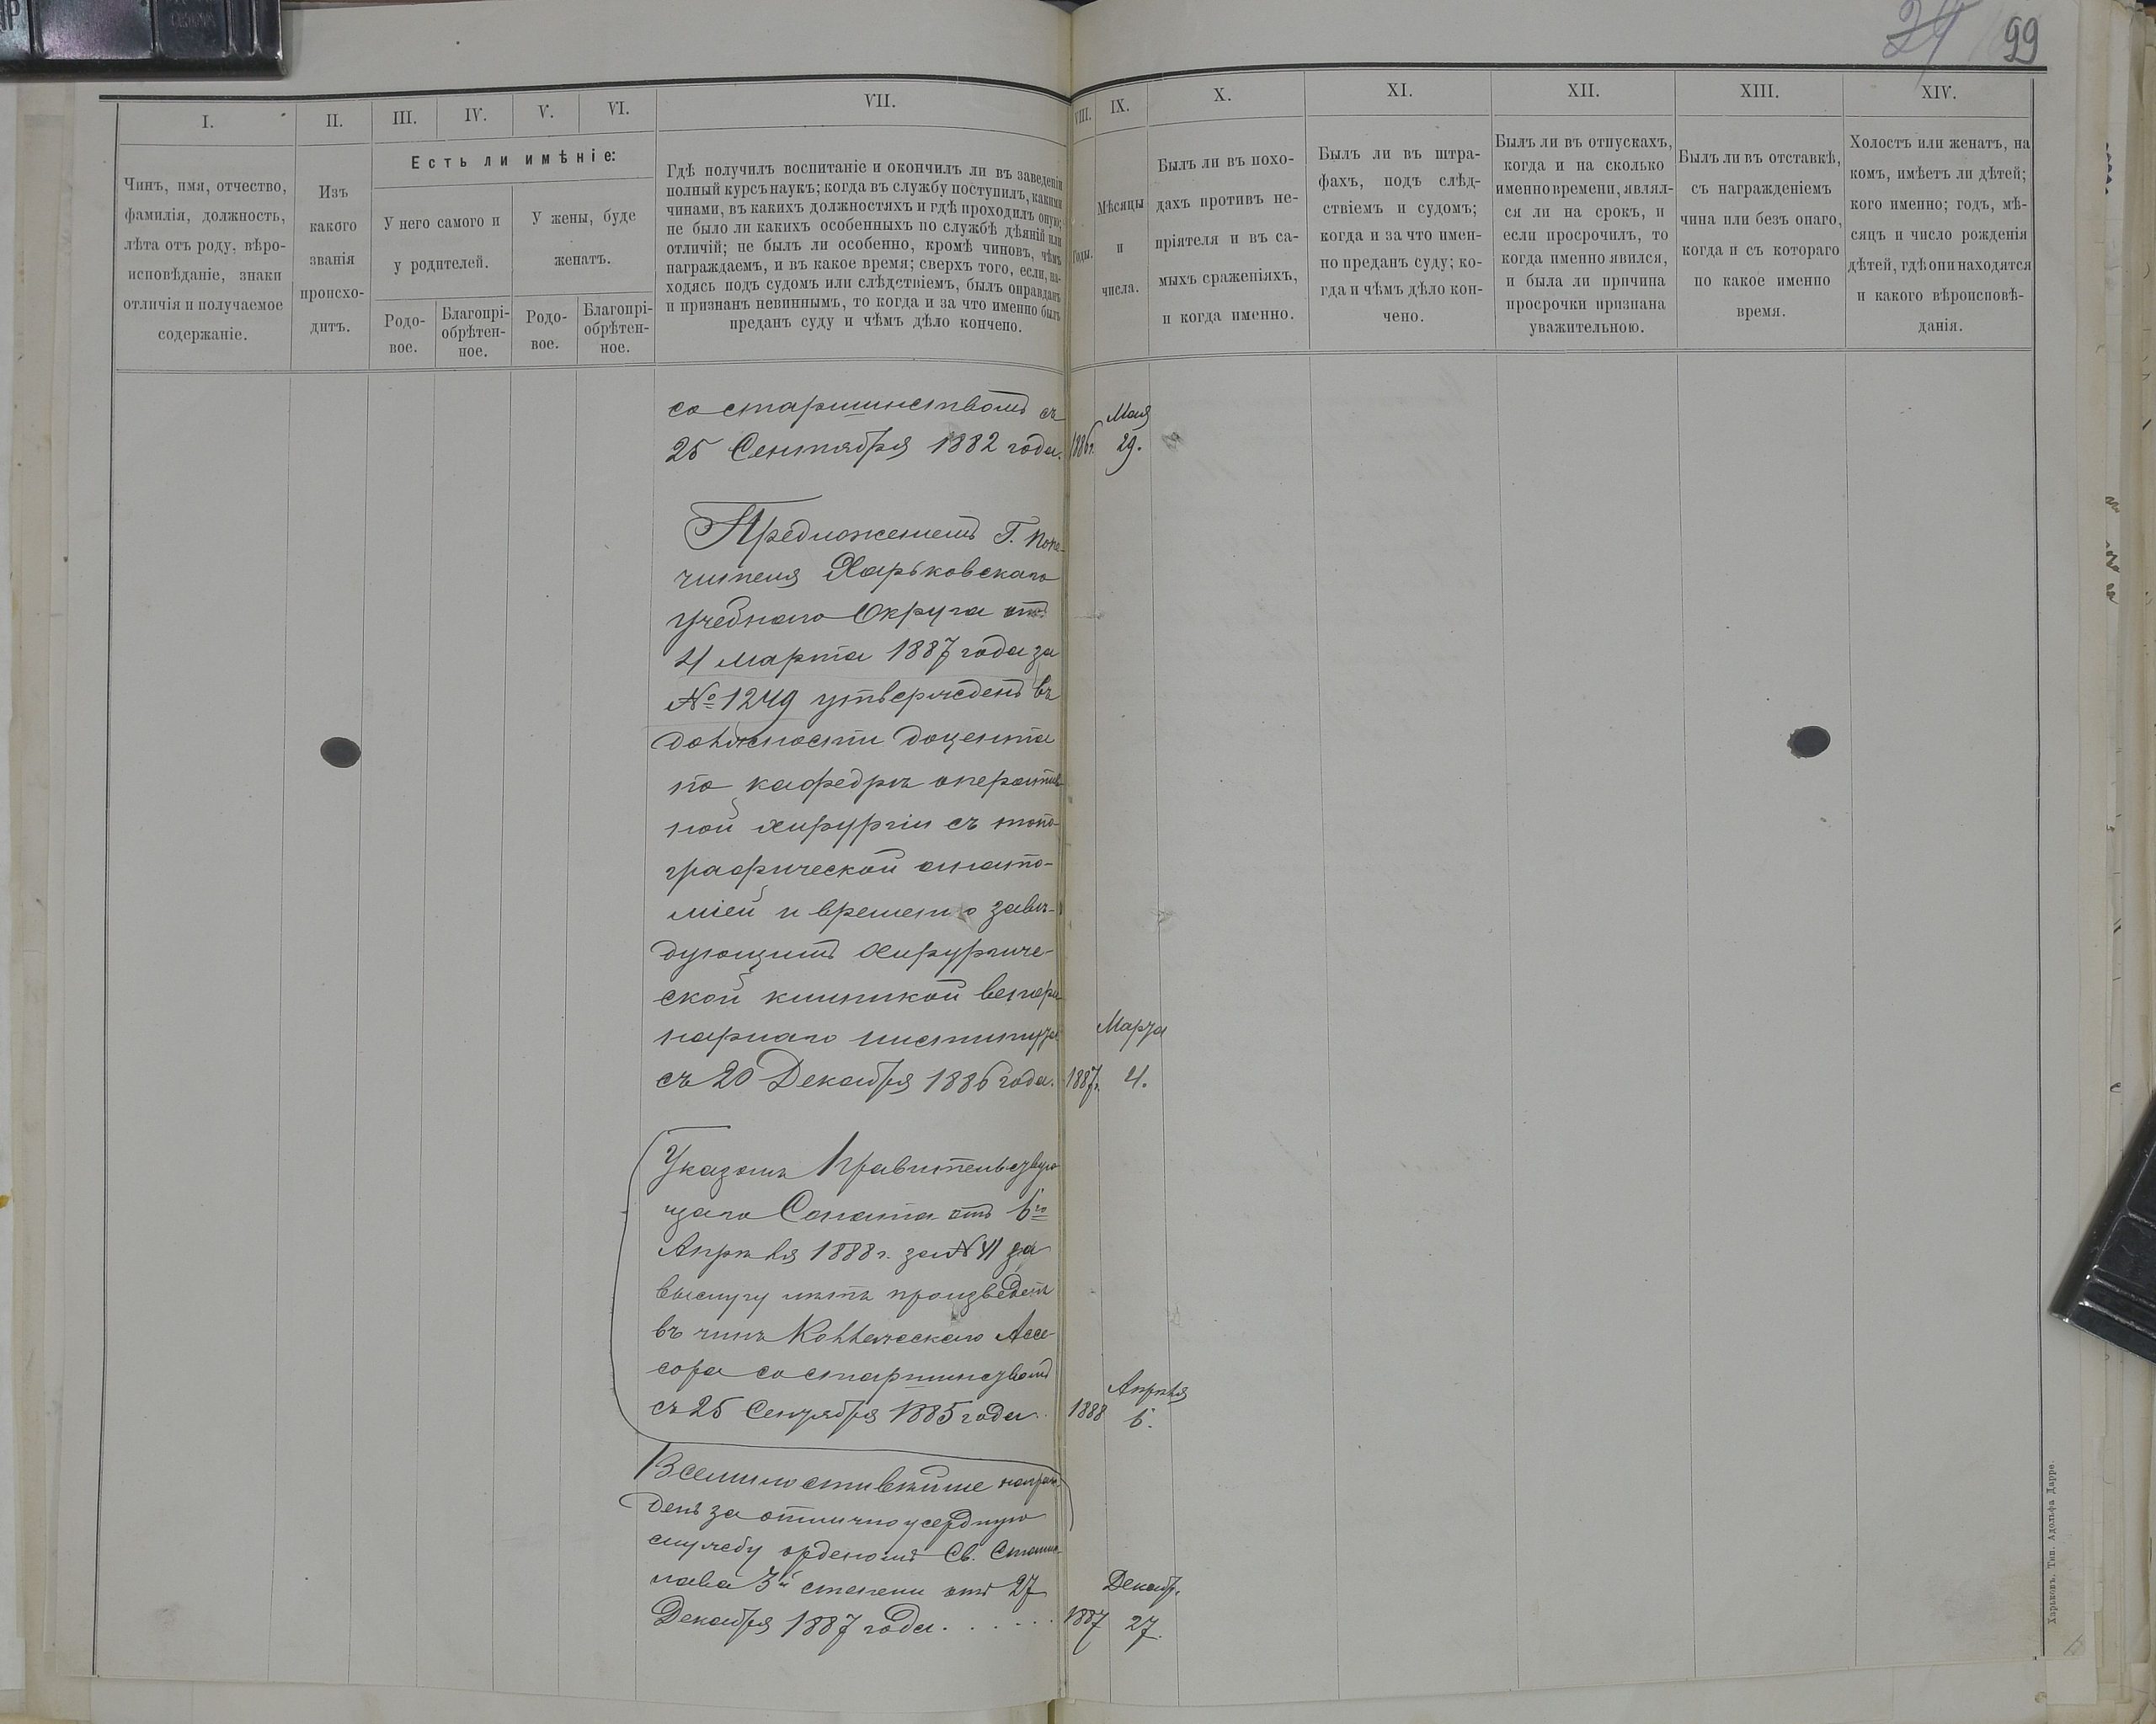 24 99
I.
Чинъ, имя, отчество,
фамилія, должность,
лѣта отъ роду, вѣро-
исповѣданіе, знаки
отличія и получаемое
содержаніе.
II.
Изъ
какого
званія
происхо-
дитъ.
III. IV. V. VI.
Есть ли имѣніе:
У него самого и
у родителей.
У жены, буде
женатъ.
Родо-
вое.
Благопрі-
обрѣтен-
ное.
Родо-
вое.
Благопрі-
обрѣтен-
ное.
VII.
Гдѣ получилъ воспитаніе и окончилъ ли въ заведеніи
полный курсъ наукъ; когда въ службу поступилъ, какими
чинами, въ какихъ должностяхъ и гдѣ проходилъ оную;
не было ли какихъ особенныхъ по службѣ дѣяній или
отличій; не былъ ли особенно, кромѣ чиновъ, чѣмъ
награждаемъ, и въ какое время; сверхъ того, если, на-
ходясь подъ судомъ или слѣдствіемъ, былъ оправданъ
и признанъ невиннымъ, то когда и за что именно былъ
преданъ суду и чѣмъ дѣло кончено.
VIII.
Годы.
IX.
Мѣсяцы
и
числа.
X.
Былъ ли въ похо-
дахъ противъ не-
пріятеля и въ са-
мыхъ сраженіяхъ,
и когда именно.
XI.
Былъ ли въ штра-
фахъ, подъ слѣд-
ствіемъ и судомъ;
когда и за что имен-
но преданъ суду; ко-
гда и чѣмъ дѣло кон-
чено.
XII.
Былъ ли въ отпускахъ,
когда и на сколько
именно времени, являл-
ся ли на срокъ, и
если просрочилъ, то
когда именно явился,
и была ли причина
просрочки признана
уважительною.
XIII.
Былъ ли въ отставкѣ,
съ награжденіемъ
чина или безъ онаго,
когда и съ котораго
по какое именно
время.
XIV.
Холостъ или женатъ, на
комъ, имѣетъ ли дѣтей;
кого именно; годъ, мѣ-
сяцъ и число рожденія
дѣтей, гдѣ они находятся
и какого вѣроисповѣ-
данія.
со старшинствомъ съ
25 Сентября 1882 года. 1886 г. Мая 29.
Предложеніемъ Г. Попе-
чителя Харьковскаго
учебнаго Округа отъ
4 марта 1887 года за
№ 1249 утвержденъ въ
должности доцента
по кафедрѣ оператив-
ной хирургіи съ топо-
графической анато-
міей и временно завѣ-
дующимъ хирургиче-
ской клиникой ветери
нарнаго института
съ 20 Декабря 1886 года. 1887 г. Марта 4.
Указомъ Правительствую
щаго Сената отъ 6го
Апрѣля 1888 г. за № 41 за
выслугу лѣтъ произведенъ
въ чинъ Коллежскаго Ассе-
сора со старшинствомъ
съ 25 Сентября 1885 года. 1888 Апрѣля 6.
Всемилостивѣйше награж
денъ за отлично усердную
службу орденомъ Св. Станис-
лава 3й степени отъ 27
Декабря 1887 года. . . . . . 1887 Декабр. 27.
Харьковъ. Тип. Адольфа Дарре.